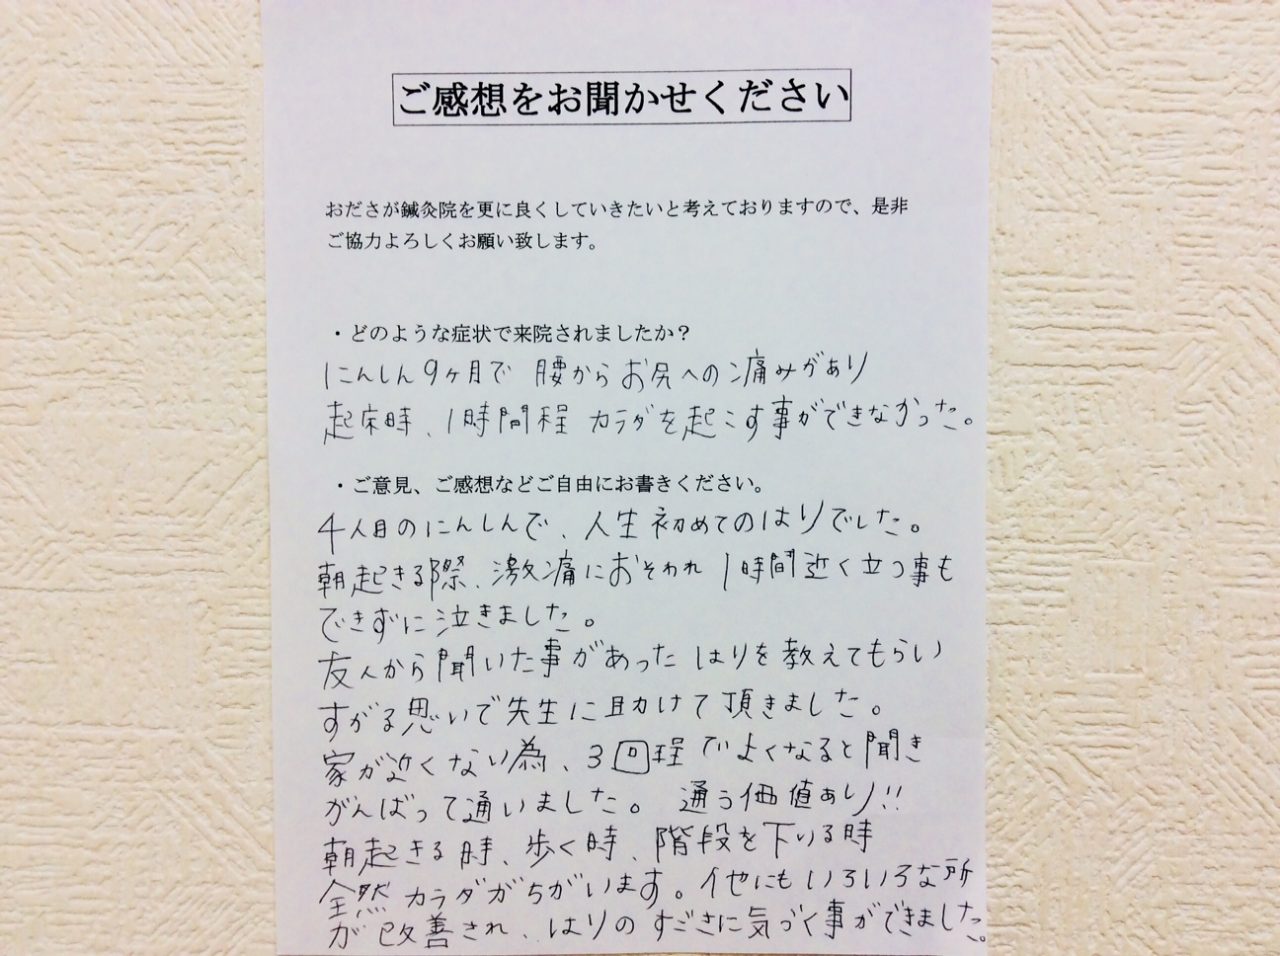 ご感想をお聞かせください
おださが鍼灸院を更に良くしていきたいと考えておりますので、是非
ご協力よろしくお願い致します。
・どのような症状で来院されましたか？
にんしん9ヶ月で 腰からお尻への痛みがあり
起床時、1時間程 カラダを起こす事ができなかった。
・ご意見、ご感想などご自由にお書きください。
4人目のにんしんで、人生初めてのはりでした。
朝起きる際、激痛におそわれ 1時間近く立つ事も
できずに泣きました。
友人から聞いた事があった はりを教えてもらい
すがる思いで先生に助けて頂きました。
家が近くない為、3回程でよくなると聞き
がんばって通いました。 通う価値あり!!
朝起きる時、歩く時、階段を下りる時
全然カラダがちがいます。他にもいろいろな所
が改善され、はりのすごさに気づく事ができました。